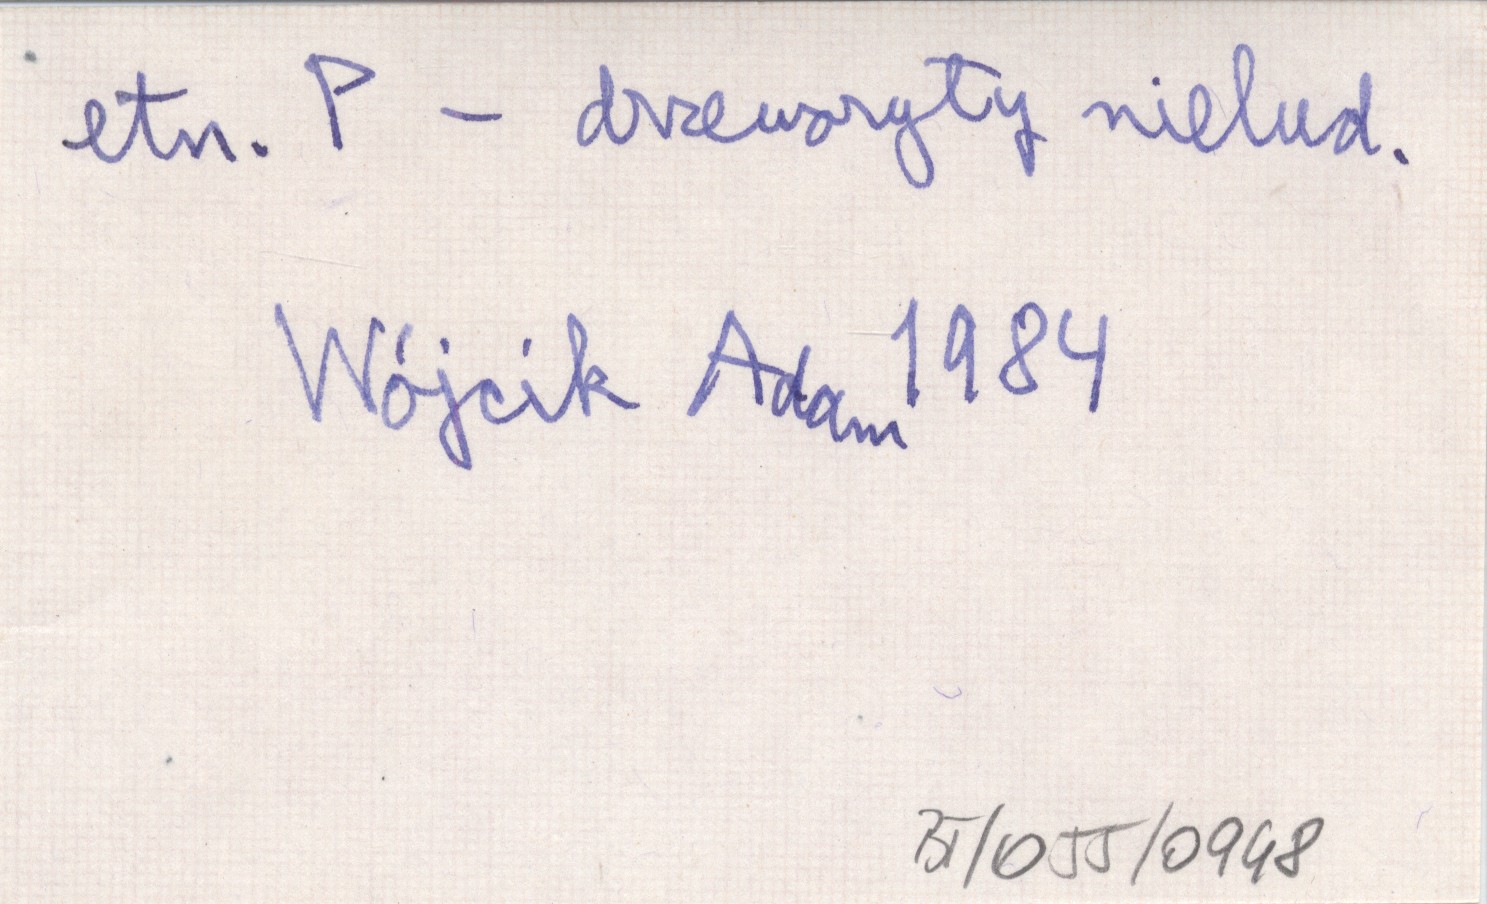 etn. P - drzeworyty nielud.
Wójcik Adam 1984
/OJJ/0948